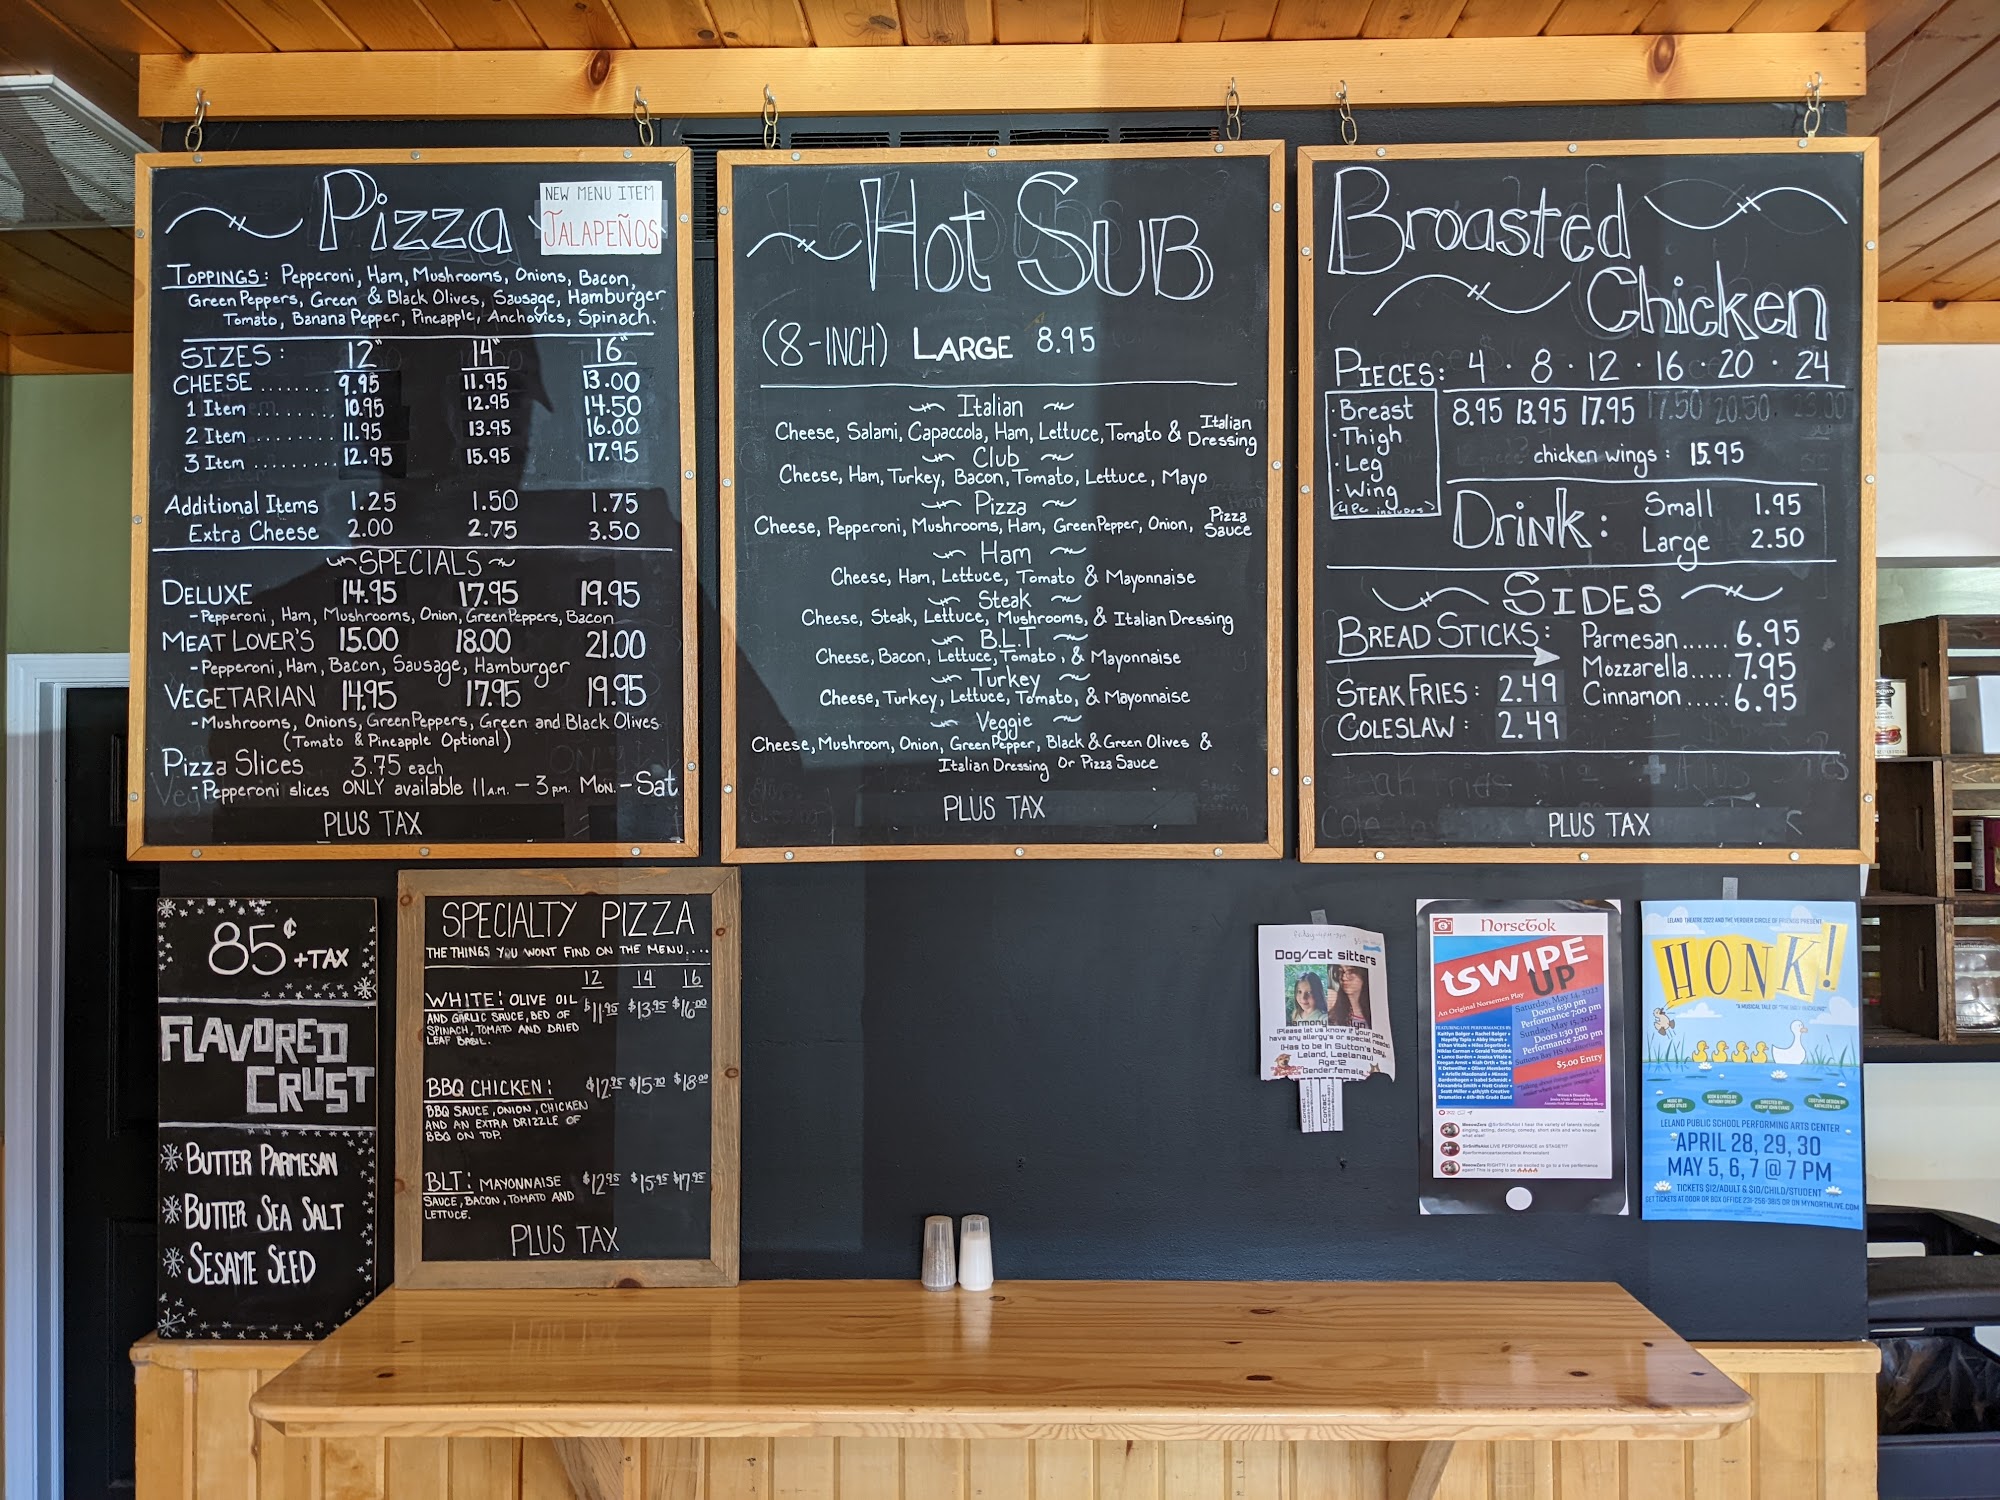 Pizza
NEW MENU ITEM
JALAPEÑOS
TOPPINGS: Pepperoni, Ham, Mushrooms, Onions, Bacon,
Green Peppers, Green & Black Olives, Sausage, Hamburger
Tomato, Banana Pepper, Pineapple, Anchovies, Spinach.
SIZES: 12" 14" 16"
CHEESE ........ 9.95 11.95 13.00
1 Item ........ 10.95 12.95 14.50
2 Item ........ 11.95 13.95 16.00
3 Item ......... 12.95 15.95 17.95
Additional Items 1.25 1.50 1.75
Extra Cheese 2.00 2.75 3.50
SPECIALS
DELUXE 14.95 17.95 19.95
-Pepperoni, Ham, Mushrooms, Onion, Green Peppers, Bacon
MEAT LOVER'S 15.00 18.00 21.00
-Pepperoni, Ham, Bacon, Sausage, Hamburger
VEGETARIAN 14.95 17.95 19.95
-Mushrooms, Onions, Green Peppers, Green and Black Olives
(Tomato & Pineapple Optional)
Pizza Slices 3.75 each
-Pepperoni slices ONLY available 11A.M. - 3pm. Mon. - Sat
PLUS TAX
Hot SUB
(8-INCH) LARGE 8.95
Italian
Cheese, Salami, Capaccola, Ham, Lettuce, Tomato & Italian Dressing
Club
Cheese, Ham, Turkey, Bacon, Tomato, Lettuce, Mayo
Pizza
Cheese, Pepperoni, Mushrooms, Ham, Green Pepper, Onion, Pizza Sauce
Ham
Cheese, Ham, Lettuce, Tomato & Mayonnaise
Steak
Cheese, Steak, Lettuce, Mushrooms, & Italian Dressing
B.L.T
Cheese, Bacon, Lettuce, Tomato, & Mayonnaise
Turkey
Cheese, Turkey, Lettuce, Tomato, & Mayonnaise
Veggie
Cheese, Mushroom, Onion, Green Pepper, Black & Green Olives &
Italian Dressing or Pizza Sauce
PLUS TAX
Broasted
Chicken
PIECES: 4 · 8 · 12 · 16 · 20 · 24
8.95 13.95 17.95 17.50 20.50
· Breast
· Thigh
· Leg
· Wing
(4 Pc includes)
chicken wings: 15.95
DRINK: Small 1.95
Large 2.50
SIDES
BREAD STICKS: Parmesan..... 6.95
Mozzarella..... 7.95
Cinnamon..... 6.95
STEAK FRIES: 2.49
COLESLAW: 2.49
PLUS TAX
85¢ +TAX
FLAVORED
CRUST
BUTTER PARMESAN
BUTTER SEA SALT
SESAME SEED
SPECIALTY PIZZA
THE THINGS YOU WONT FIND ON THE MENU....
12 14 16
WHITE: OLIVE OIL $11.95 $13.95 $16.00
AND GARLIC SAUCE, BED OF
SPINACH, TOMATO AND DRIED
LEAF BASIL.
BBQ CHICKEN: $12.95 $15.70 $18.00
BBQ SAUCE, ONION, CHICKEN
AND AN EXTRA DRIZZLE OF
BBQ ON TOP.
BLT: MAYONNAISE $12.95 $15.95 $17.95
SAUCE, BACON, TOMATO AND
LETTUCE.
PLUS TAX
Dog/cat sitters
(Please let us know if your pets
have any allergy's or special needs)
(Has to be in Sutton's bay,
Leland, Leelanau)
Age:12
Gender:female
NorseTok
SWIPE
UP
An Original Norsemen Play
Saturday, May 14, 2022
Doors 6:30 pm
Performance 7:00 pm
Sunday, May 15, 2022
Doors 1:30 pm
Performance 2:00 pm
Suttons Bay HS Auditorium
$5.00 Entry
LELAND THEATRE 2022 AND THE VERDIER CIRCLE OF FRIENDS PRESENT
HONK!
"A MUSICAL TALE OF "THE UGLY DUCKLING"
LELAND PUBLIC SCHOOL PERFORMING ARTS CENTER
APRIL 28, 29, 30
MAY 5, 6, 7 @ 7 PM
TICKETS $12/ADULT & $10/CHILD/STUDENT
GET TICKETS AT DOOR OR BOX OFFICE 231-256-3815 OR ON MYNORTHLIVE.COM